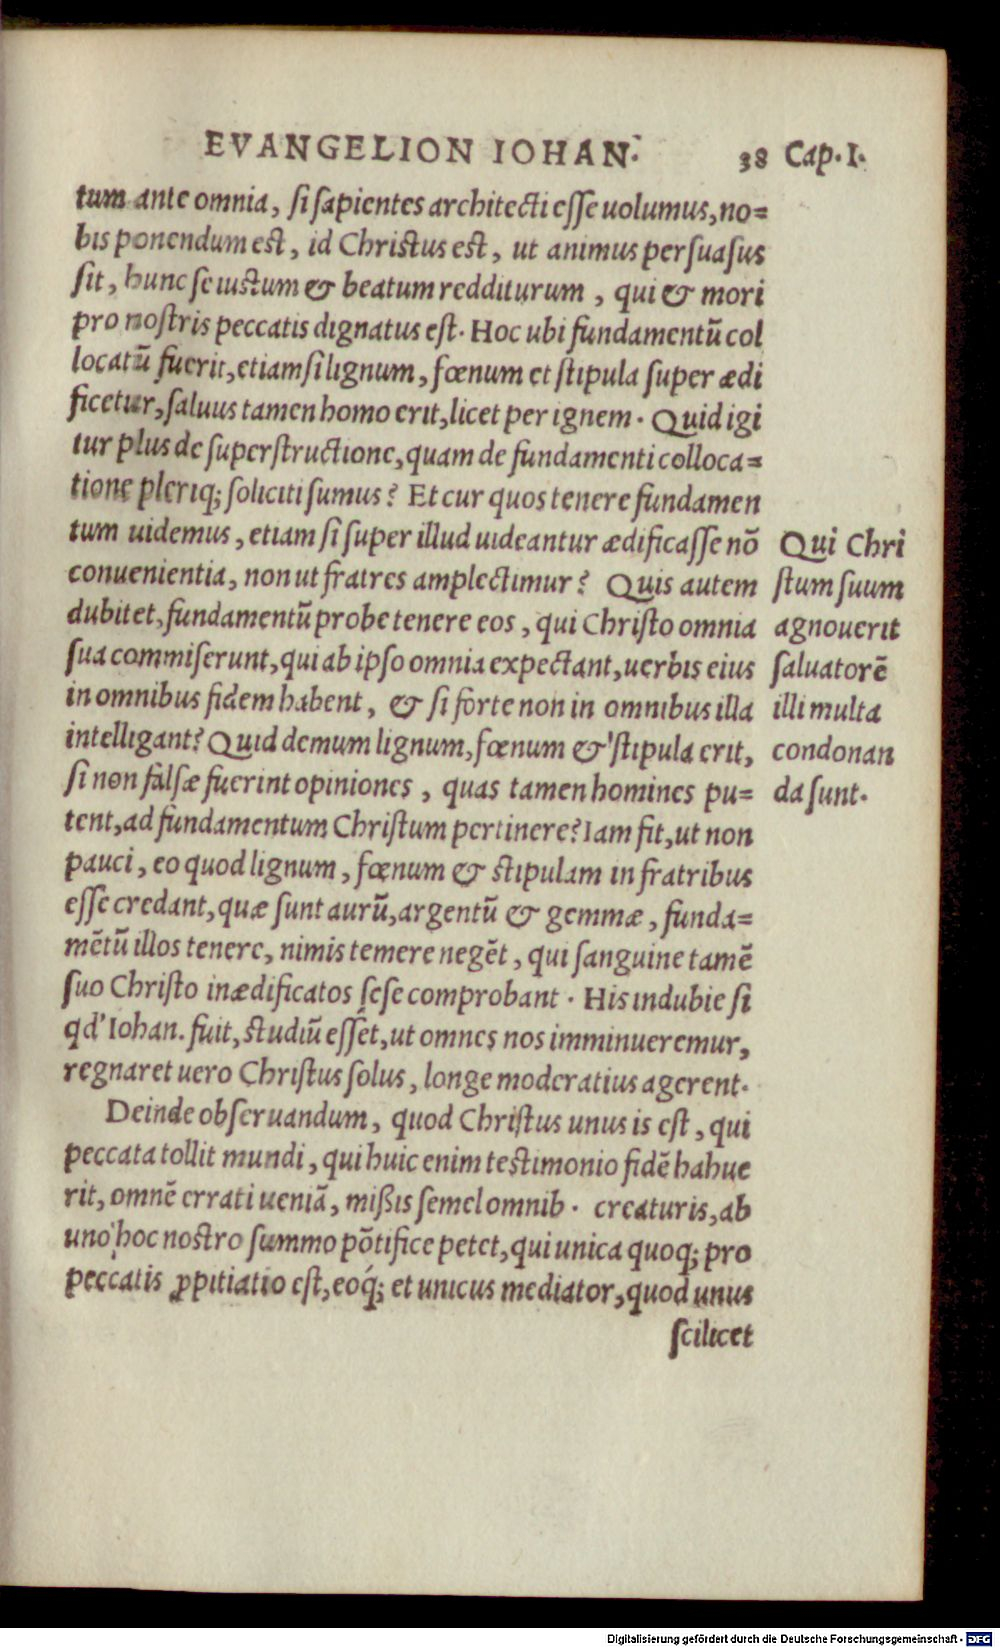 EVANGELION IOHAN. 38 Cap. I.
tum ante omnia, si sapientes architecti esse uolumus, no=
bis ponendum est, id Christus est, ut animus persuasus
sit, hunc se iustum & beatum redditurum, qui & mori
pro nostris peccatis dignatus est. Hoc ubi fundamentū col
locatū fuerit, etiamsi lignum, fœnum et stipula super ædi
ficetur, saluus tamen homo erit, licet per ignem. Quid igi
tur plus de superstructione, quam de fundamenti colloca=
tione pleriq; soliciti sumus? Et cur quos tenere fundamen
tum uidemus, etiam si super illud uideantur ædificasse nō
conuenientia, non ut fratres amplectimur? Quis autem
dubitet, fundamentū probe tenere eos, qui Christo omnia
sua commiserunt, qui ab ipso omnia expectant, uerbis eius
in omnibus fidem habent, & si forte non in omnibus illa
intelligant? Quid demum lignum, fœnum & stipula erit,
si non falsæ fuerint opiniones, quas tamen homines pu=
tent, ad fundamentum Christum pertinere? Iam fit, ut non
pauci, eo quod lignum, fœnum & stipulam in fratribus
esse credant, quæ sunt aurū, argentū & gemmæ, funda=
mētū illos tenere, nimis temere negēt, qui sanguine tamē
suo Christo inædificatos sese comprobant. His indubie si
qd' Iohan. fuit, studiū esset, ut omnes nos imminueremur,
regnaret uero Christus solus, longe moderatius agerent.
Deinde obseruandum, quod Christus unus is est, qui
peccata tollit mundi, qui huic enim testimonio fidē habue
rit, omnē errati ueniā, mißis semel omnib. creaturis, ab
uno hoc nostro summo pōtifice petet, qui unica quoq; pro
peccatis ꝓpitiatio est, eoq́; et unicus mediator, quod unus
scilicet
Qui Chri
stum suum
agnouerit
saluatorē
illi multa
condonan
da sunt.
Digitalisierung gefördert durch die Deutsche Forschungsgemeinschaft - DFG